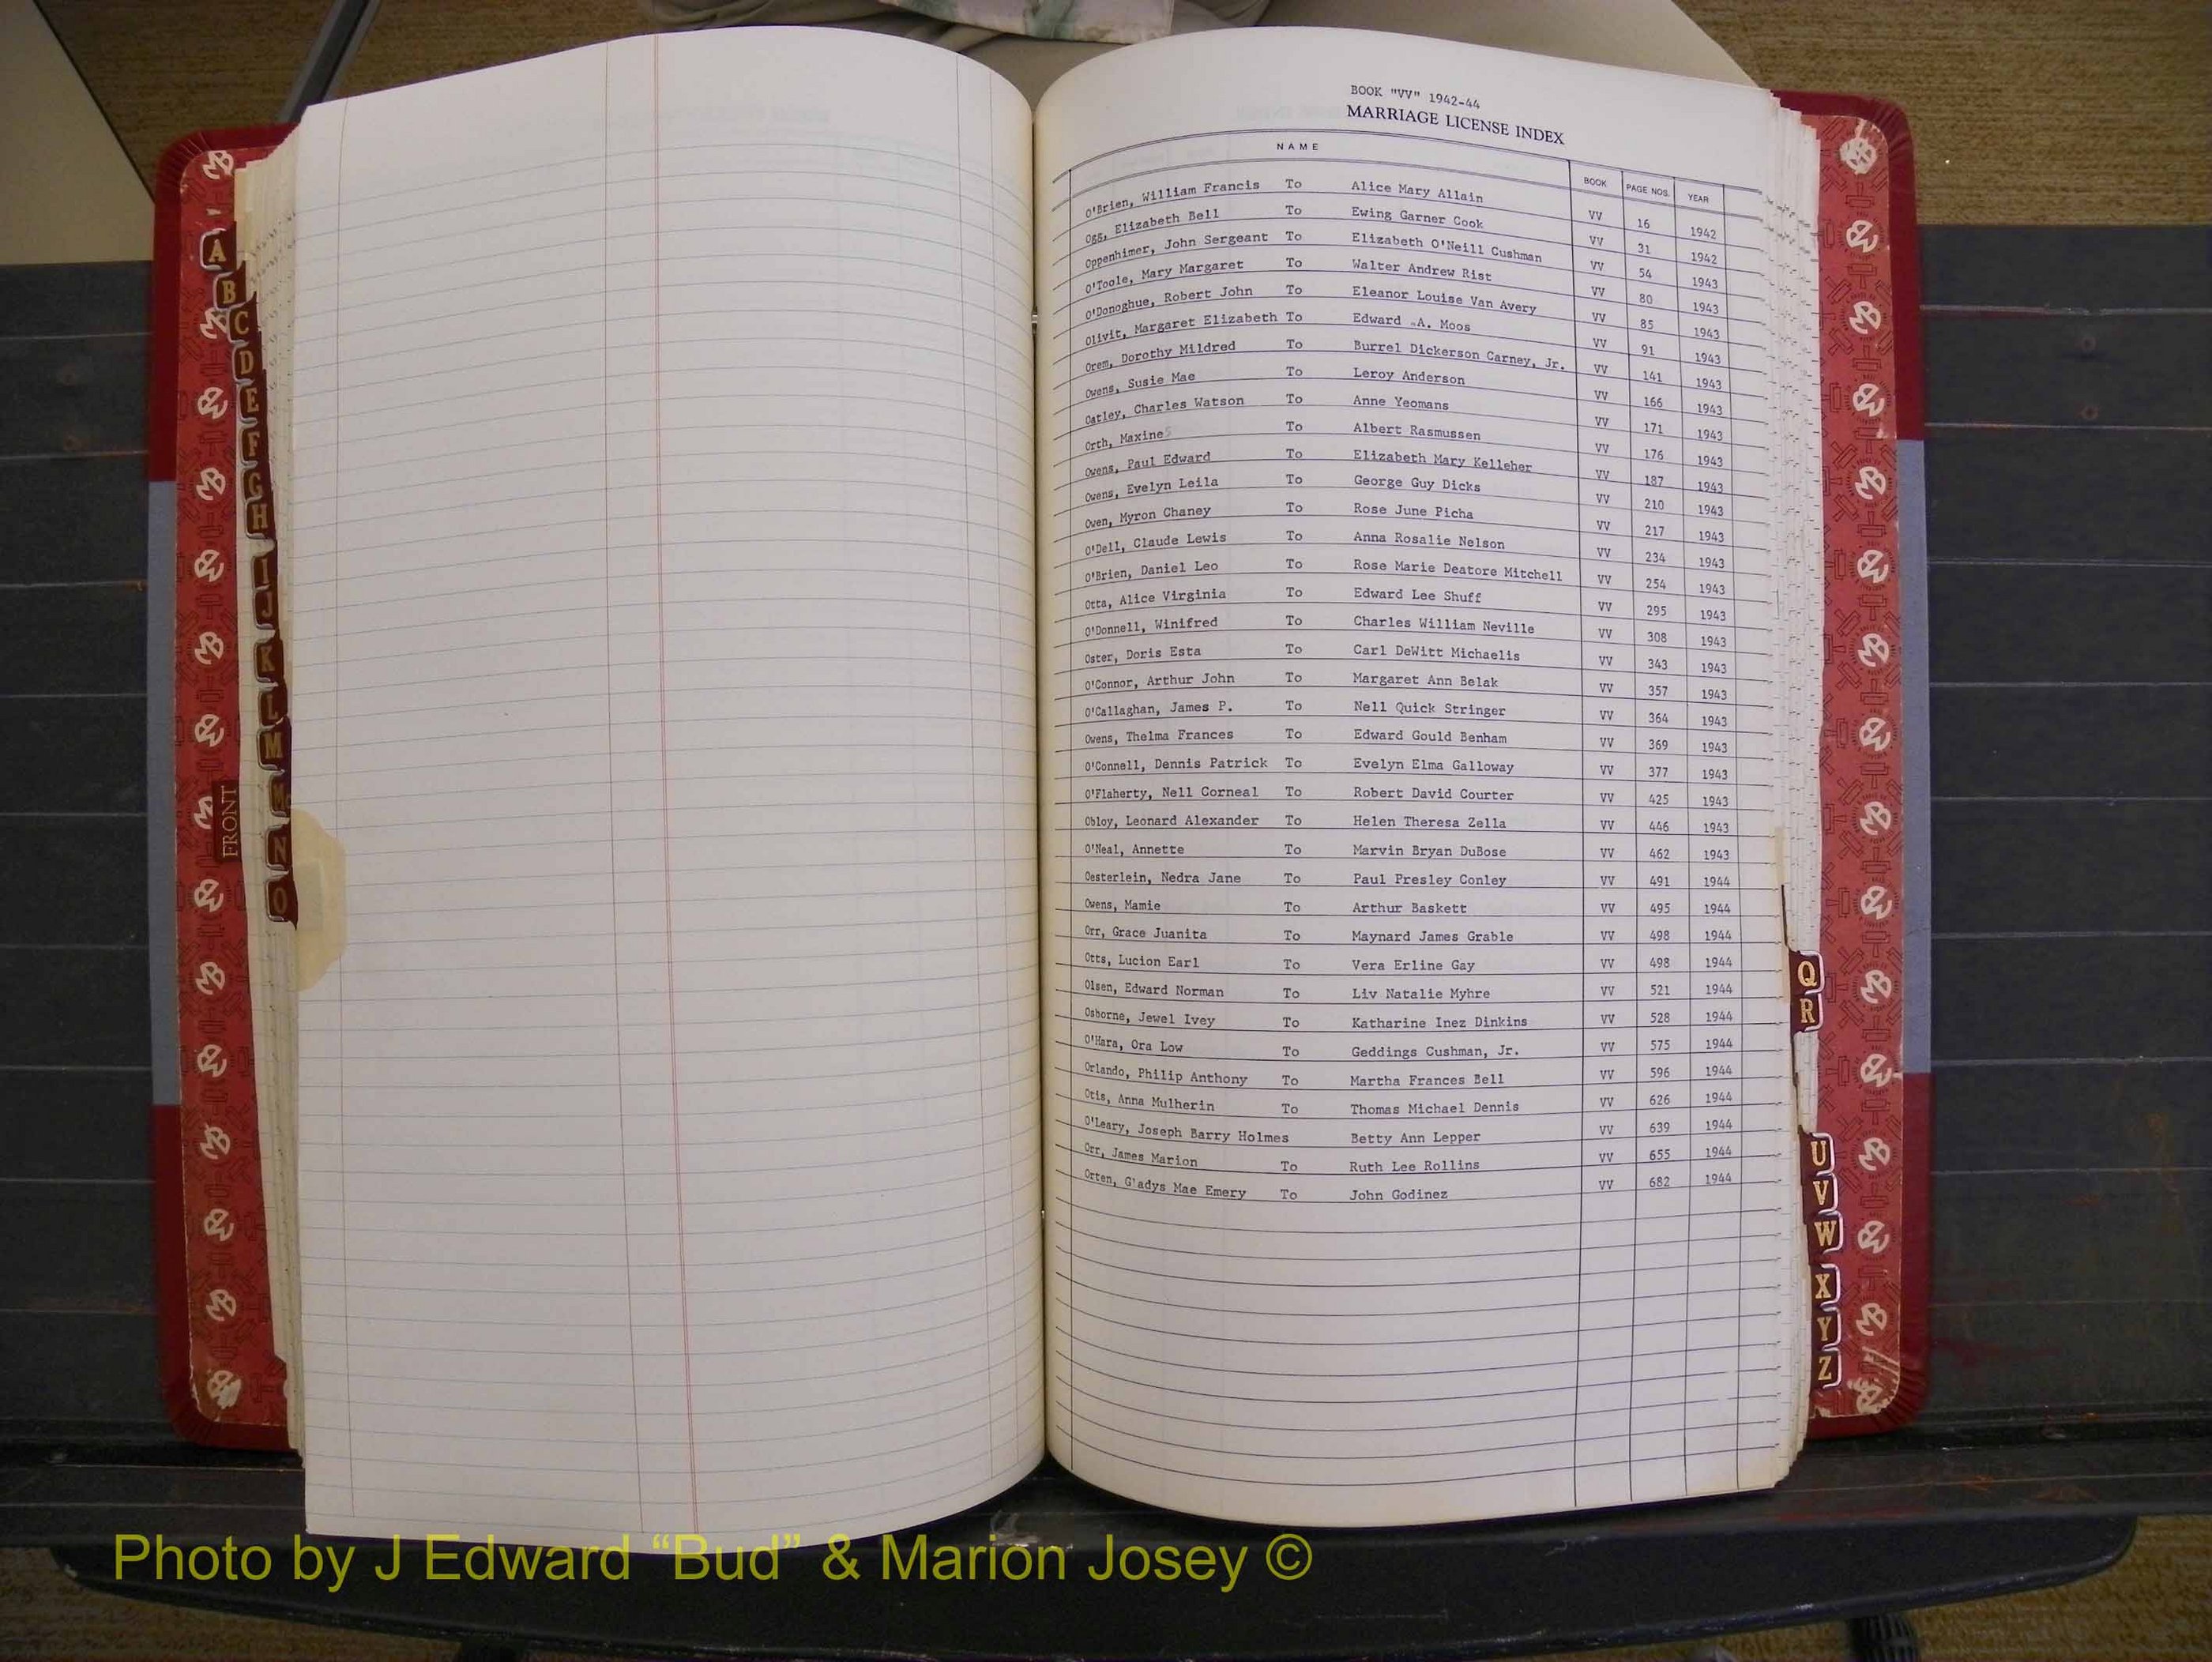 BOOK "VV" 1942-44
MARRIAGE LICENSE INDEX
NAME BOOK PAGE NOS. YEAR
O'Brien, William Francis To Alice Mary Allain VV 16 1942
Ogg, Elizabeth Bell To Ewing Garner Cook VV 31 1942
Oppenhimer, John Sergeant To Elizabeth O'Neill Cushman VV 54 1943
O'Toole, Mary Margaret To Walter Andrew Rist VV 80 1943
O'Donoghue, Robert John To Eleanor Louise Van Avery VV 85 1943
Olivit, Margaret Elizabeth To Edward A. Moos VV 91 1943
Orem, Dorothy Mildred To Burrel Dickerson Carney, Jr. VV 141 1943
Owens, Susie Mae To Leroy Anderson VV 166 1943
Oatley, Charles Watson To Anne Yeomans VV 171 1943
Orth, Maxine S To Albert Rasmussen VV 176 1943
Owens, Paul Edward To Elizabeth Mary Kelleher VV 187 1943
Owens, Evelyn Leila To George Guy Dicks VV 210 1943
Owen, Myron Chaney To Rose June Picha VV 217 1943
O'Dell, Claude Lewis To Anna Rosalie Nelson VV 234 1943
O'Brien, Daniel Leo To Rose Marie Deatore Mitchell VV 254 1943
Otta, Alice Virginia To Edward Lee Shuff VV 295 1943
O'Donnell, Winifred To Charles William Neville VV 308 1943
Oster, Doris Esta To Carl DeWitt Michaelis VV 343 1943
O'Connor, Arthur John To Margaret Ann Belak VV 357 1943
O'Callaghan, James P. To Nell Quick Stringer VV 364 1943
Owens, Thelma Frances To Edward Gould Benham VV 369 1943
O'Connell, Dennis Patrick To Evelyn Elma Galloway VV 377 1943
O'Flaherty, Nell Corneal To Robert David Courter VV 425 1943
Obloy, Leonard Alexander To Helen Theresa Zella VV 446 1943
O'Neal, Annette To Marvin Bryan DuBose VV 462 1943
Oesterlein, Nedra Jane To Paul Presley Conley VV 491 1944
Owens, Mamie To Arthur Baskett VV 495 1944
Orr, Grace Juanita To Maynard James Grable VV 498 1944
Otts, Lucion Earl To Vera Erline Gay VV 498 1944
Olsen, Edward Norman To Liv Natalie Myhre VV 521 1944
Osborne, Jewel Ivey To Katharine Inez Dinkins VV 528 1944
O'Hara, Ora Low To Geddings Cushman, Jr. VV 575 1944
Orlando, Philip Anthony To Martha Frances Bell VV 596 1944
Otis, Anna Mulherin To Thomas Michael Dennis VV 626 1944
O'Leary, Joseph Barry Holmes Betty Ann Lepper VV 639 1944
Orr, James Marion To Ruth Lee Rollins VV 655 1944
Orten, G'adys Mae Emery To John Godinez VV 682 1944
A
B
C
D
E
F
G
H
I
J
K
L
M
Mc
N
O
FRONT
Q
R
U
V
W
X
Y
Z
Photo by J Edward “Bud” & Marion Josey ©